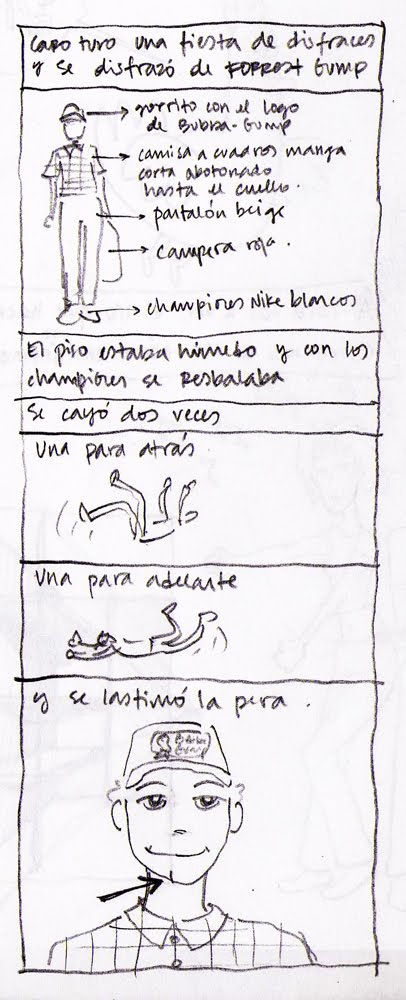 Capo tuvo una fiesta de disfraces
y se disfrazó de FORREST Gump
gorrito con el logo
de Bubba-Gump
camisa a cuadros manga
corta abotonado
hasta el cuello.
pantalón beige
campera roja.
championes Nike blancos
El piso estaba húmedo y con los
championes se Resbalaba
Se cayó dos veces
Una para atrás
Una para adelante
y se lastimó la pera.
Bubba
Gump